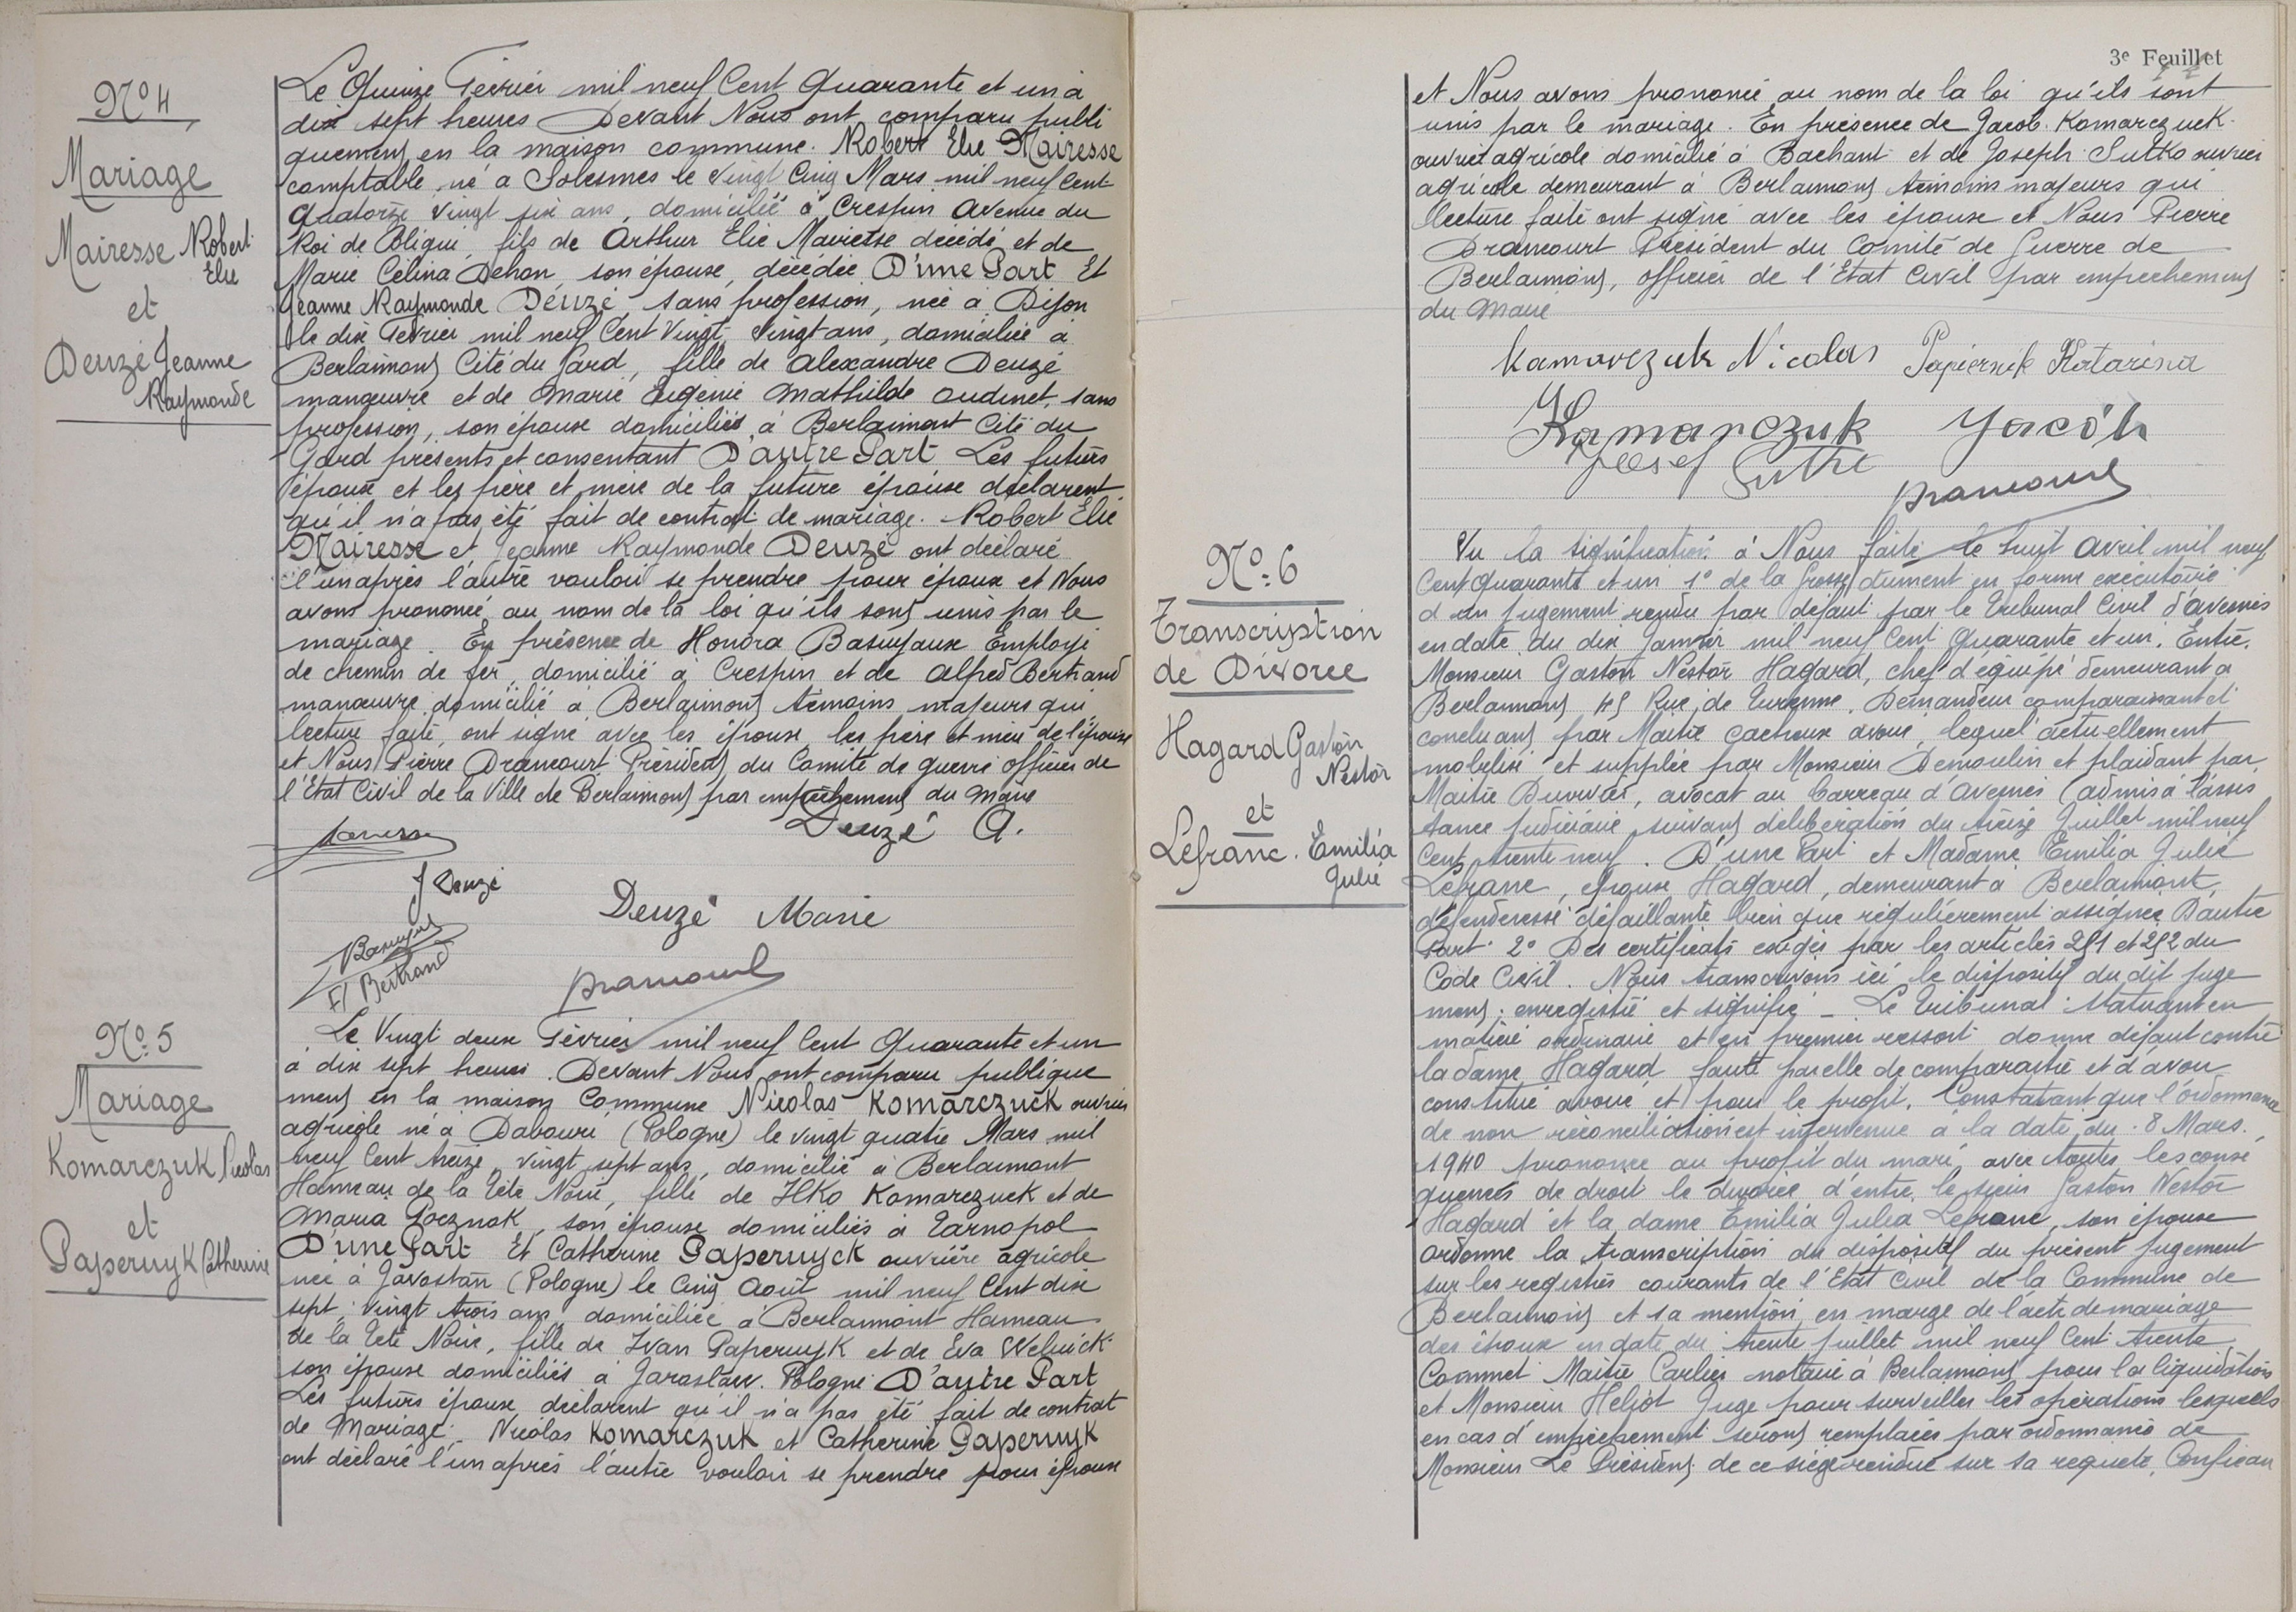 Nº 4
Mariage
Mairesse Robert
Elie
et
Deuzé Jeanne
Raymonde
Le Quinze Février mil neuf Cent Quarante et un à
dix sept heures Devant Nous ont comparu publi
quement en la maison commune. Robert Elie Mairesse
comptable, né à Solesmes le Vingt Cinq Mars mil neuf Cent
Quatorze Vingt six ans, domicilié à Crespin Avenue du
Roi de fils de Arthur Elie Mairesse décédé et de
Marie Célina Dehon, son épouse, décédée D'une Part Et
Jeanne Raymonde Deuzé, sans profession, née à Dijon
le dix Février mil neuf Cent Vingt, Vingt ans, domiciliée à
Berlaimont Cité du Gard, fille de Alexandre Deuzé
manœuvre et de Marie Eugénie Mathilde Oudinet, sans
profession, son épouse domiciliés à Berlaimont Cité du
Gard présents et consentant D'autre Part Les futurs
époux et les père et mère de la future épouse déclarent
qu'il n'a pas été fait de contrat de mariage. Robert Elie
Mairesse et Jeanne Raymonde Deuzé ont déclaré
l'un après l'autre vouloir se prendre pour époux et Nous
avons prononcé au nom de la loi qu'ils sont unis par le
mariage. En présence de Honora Basuyaux Employé
de chemin de fer, domicilié à Crespin et de Alfred Bertrand
manœuvre domicilié à Berlaimont témoins majeurs qui
lecture faite, ont signé avec les époux, les père et mère de l'épouse
et Nous Pierre Drancourt Président du Comité de guerre officier de
l'Etat Civil de la Ville de Berlaimont par empêchement du Maire
Deuzé A.
J Deuzé
Deuzé Marie
Bertrand
Drancourt
Nº 5
Mariage
Komarczuk Nicolas
et
Paperuyk Catherine
Le Vingt deux Février mil neuf Cent Quarante et un
à dix sept heures. Devant Nous ont comparu publique
ment en la maison Commune Nicolas Komarczuck ouvrier
agricole né à Dabouri (Pologne) le vingt quatre Mars mil
neuf Cent treize, vingt sept ans, domicilié à Berlaimont
Hameau de la Tête Noire, fils de Ilko Komarczuck et de
Maria Pocznak, son épouse domiciliés à Tarnopol
D'une Part Et Catherine Paperuyck ouvrière agricole
née à Javostan (Pologne) le Cinq Août mil neuf Cent dix
sept, Vingt trois ans, domiciliée à Berlaimont Hameau
de la Tête Noire, fille de Ivan Paperuyk et de Eva Welnick
son épouse domiciliés à Jaroslaw. Pologne D'autre Part
Les futurs époux déclarent qu'il n'a pas été fait de contrat
de Mariage. Nicolas Komarczuk et Catherine Paperuyk
ont déclaré l'un après l'autre vouloir se prendre pour époux
3e Feuillet
et Nous avons prononcé au nom de la loi qu'ils sont
unis par le mariage. En présence de Jacob. Komarczuck.
ouvrier agricole domicilié à Bachant et de Joseph Sutko ouvrier
agricole demeurant à Berlaimont témoins majeurs qui
lecture faite ont signé avec les époux et Nous Pierre
Drancourt Président du Comité de Guerre de
Berlaimont, officier de l'Etat Civil par empêchement
du Maire
Kamarczuk Nicolas Papiernik Katarina
Kamarczuk Jacób
Josef Sutko
Drancourt
Nº 6
Transcription
de Divorce
Hagard Gaston
Nestor
et
Lefranc. Emilia
Julie
Vu la signification à Nous faite le huit Avril mil neuf
Cent quarante et un 1º de la Grosse dument en forme exécutoire
d'un jugement rendu par défaut par le Tribunal Civil d'Avesnes
en date du dix Janvier mil neuf Cent Quarante et un. Entre.
Monsieur Gaston Nestor Hagard, chef d'équipe demeurant à
Berlaimont 45 Rue de Turenne. Demandeur comparaissant et
concluant par Maître Cacheux avoué, lequel actuellement
mobilisé et supplée par Monsieur Demoulin et plaidant par
Maître Duvivier, avocat au barreau d'Avesnes (admis à l'assis
tance judiciaire suivant délibération du treize Juillet mil neuf
Cent trente neuf. D'une Part et Madame Emilia Julie
Lefranc, épouse Hagard, demeurant à Berlaimont,
défenderesse défaillante bien que régulièrement assignée D'autre
Part 2º Des certificats exigés par les articles 251 et 252 du
Code Civil. Nous transcrivons ici le dispositif du dit juge
ment; enregistré et signifié _ Le Tribunal: Statuant en
matière ordinaire et en premier ressort donne défaut contre
la dame Hagard, faute par elle de comparaître et d'avoir
constitué avoué et pour le profit. Constatant que l'ordonnance
de non réconciliation est intervenue à la date du 8 Mars.
1940 prononce au profit du mari, avec toutes les consé
quences de droit le divorce d'entre le sieur Gaston Nestor
Hagard et la dame Emilia Julia Lefranc, son épouse
ordonne la transcription du dispositif du présent jugement
sur les registres courants de l'Etat Civil de la Commune de
Berlaimont et sa mention en marge de l'acte de mariage
des époux en date du trente juillet mil neuf Cent trente
Commet Maître Carlier notaire à Berlaimont pour la liquidation
et Monsieur Heljot Juge pour surveiller les opérations lesquels
en cas d'empêchement seront remplacés par ordonnance de
Monsieur Le Président de ce siège rendue sur sa requête.